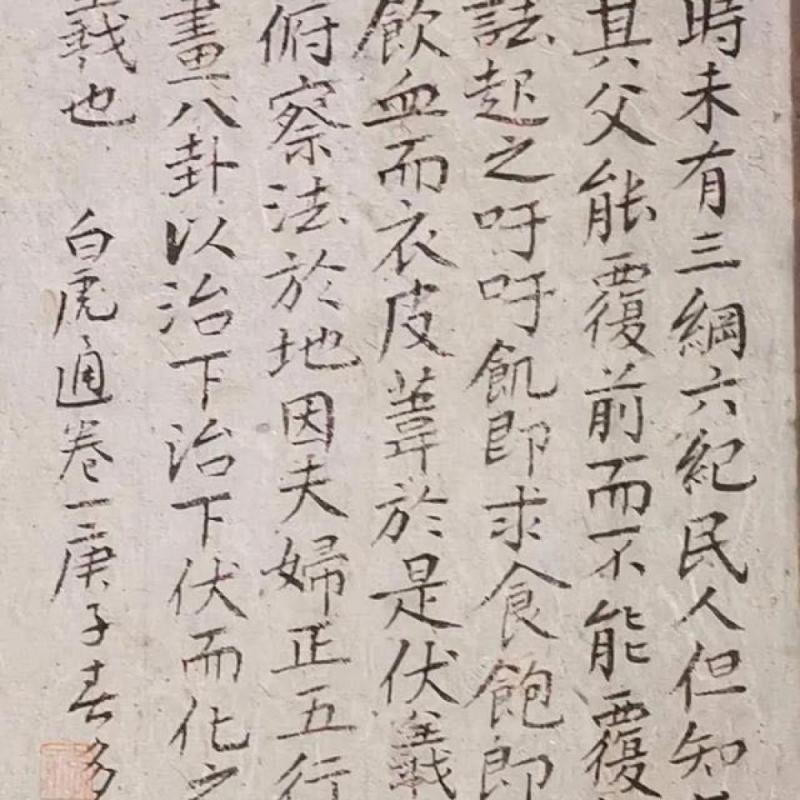 時未有三綱六紀民人但知
其父能覆前而不能覆
詓起之吁吁飢即求食飽即
飲血而衣皮葦於是伏羲
俯察法於地因夫婦正五行
畫八卦以治下治下伏而化之
羲也 白虎通卷一庚子春